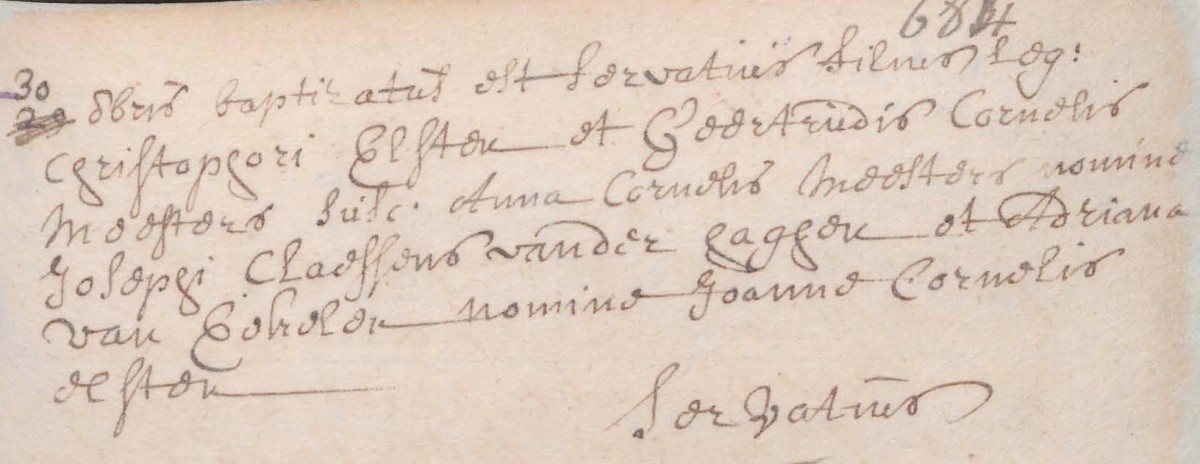 684
30
29 8bris baptizatus est Servatius filius leg:
Christophori Elsten et Geertrudis Cornelis
Meesters susc. Anna Cornelis Meesters nomine
Josephi Claessens vander hagghen et Adriana
van Eekelen nomine Joanne Cornelis
elsten
Servatius